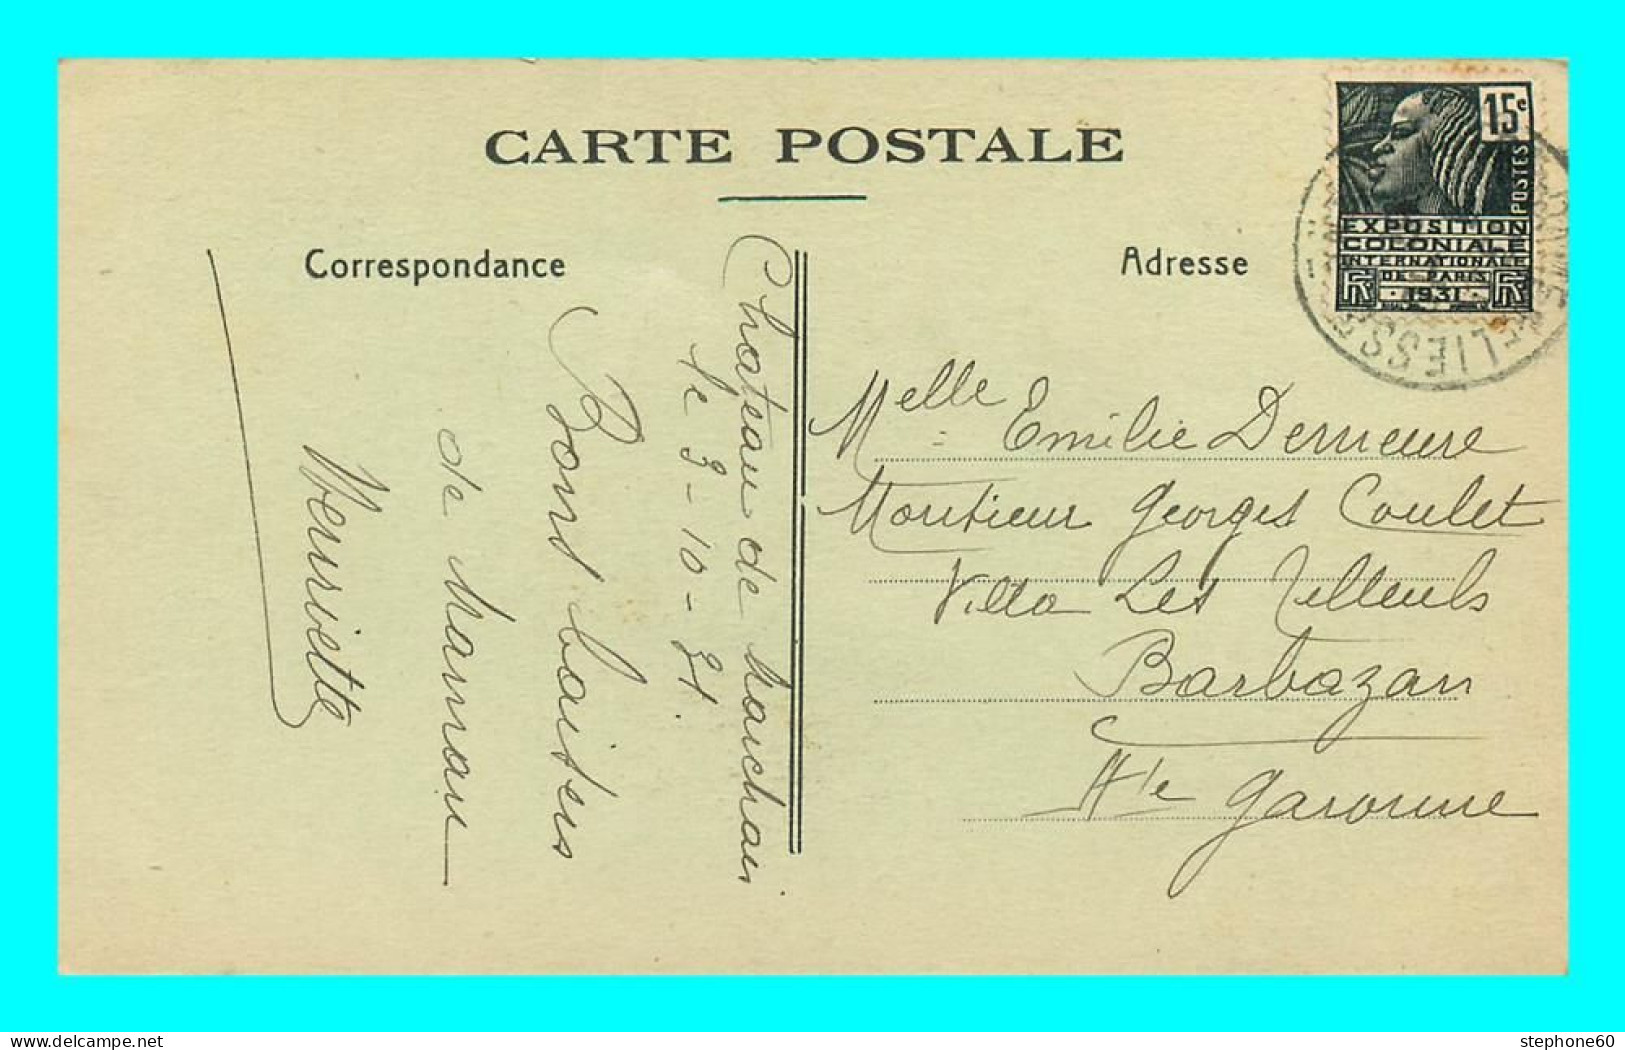 CARTE POSTALE
Correspondance
Adresse
15c
POSTES
EXPOSITION
COLONIALE
INTERNATIONALE
DE PARIS
1931
RF RF
LIESSE
Château de Marchais
le 3-10-31.
Bons baisers
de Maman
Henriette
Melle Emilie
Monsieur Georges Coulet
Villa Les Tilleuls
Barbazan
Hte Garonne
stephone60